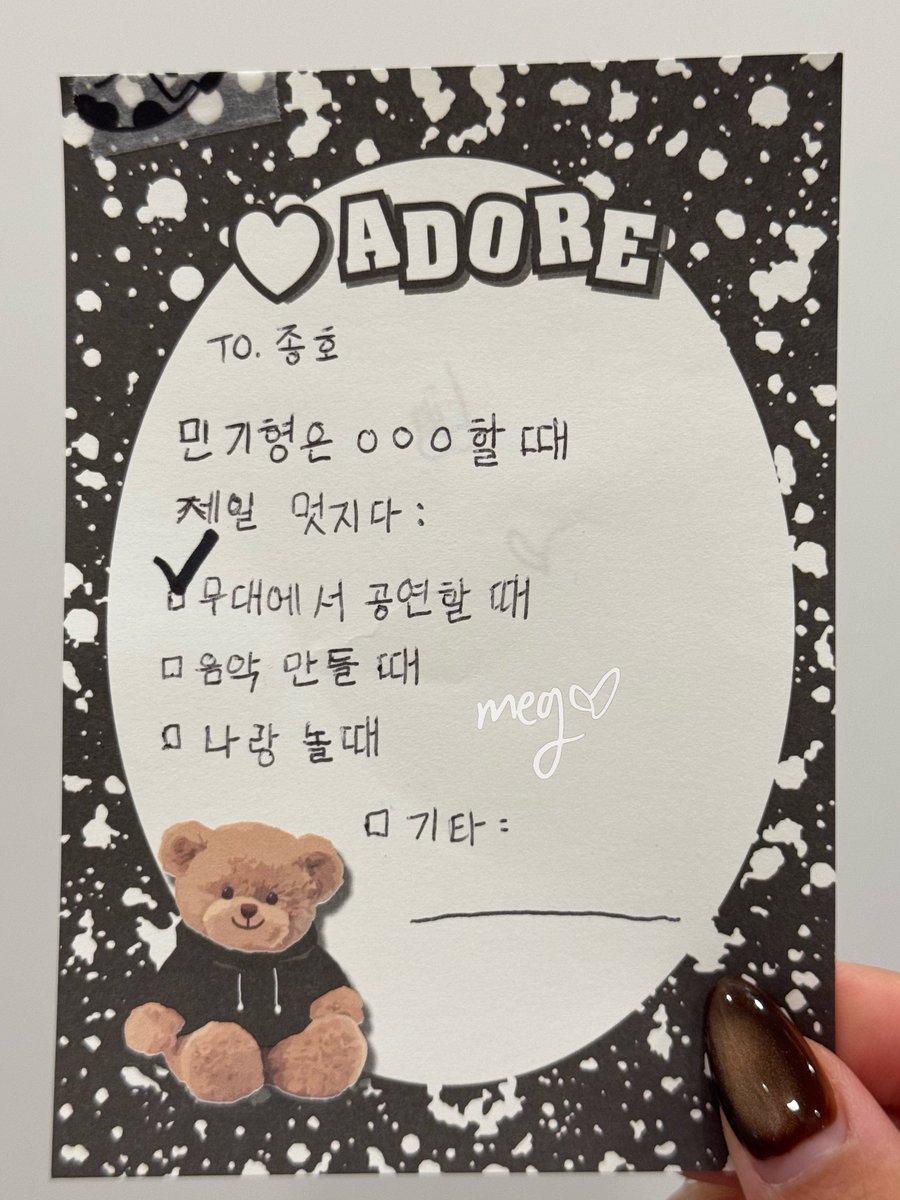 ADORE
TO. 종호
민기형은 ㅇㅇㅇ할 때
제일 멋지다:
무대에서 공연할 때
음악 만들 때
나랑 놀때
기타:
meg